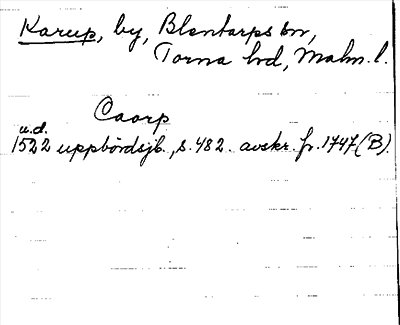 Karup, by, Blentarps sn,
Torna hd, Malm. l.
Caarp
u.d.
1522 uppbördsjb., s. 482. avskr. fr. 1747 (B).